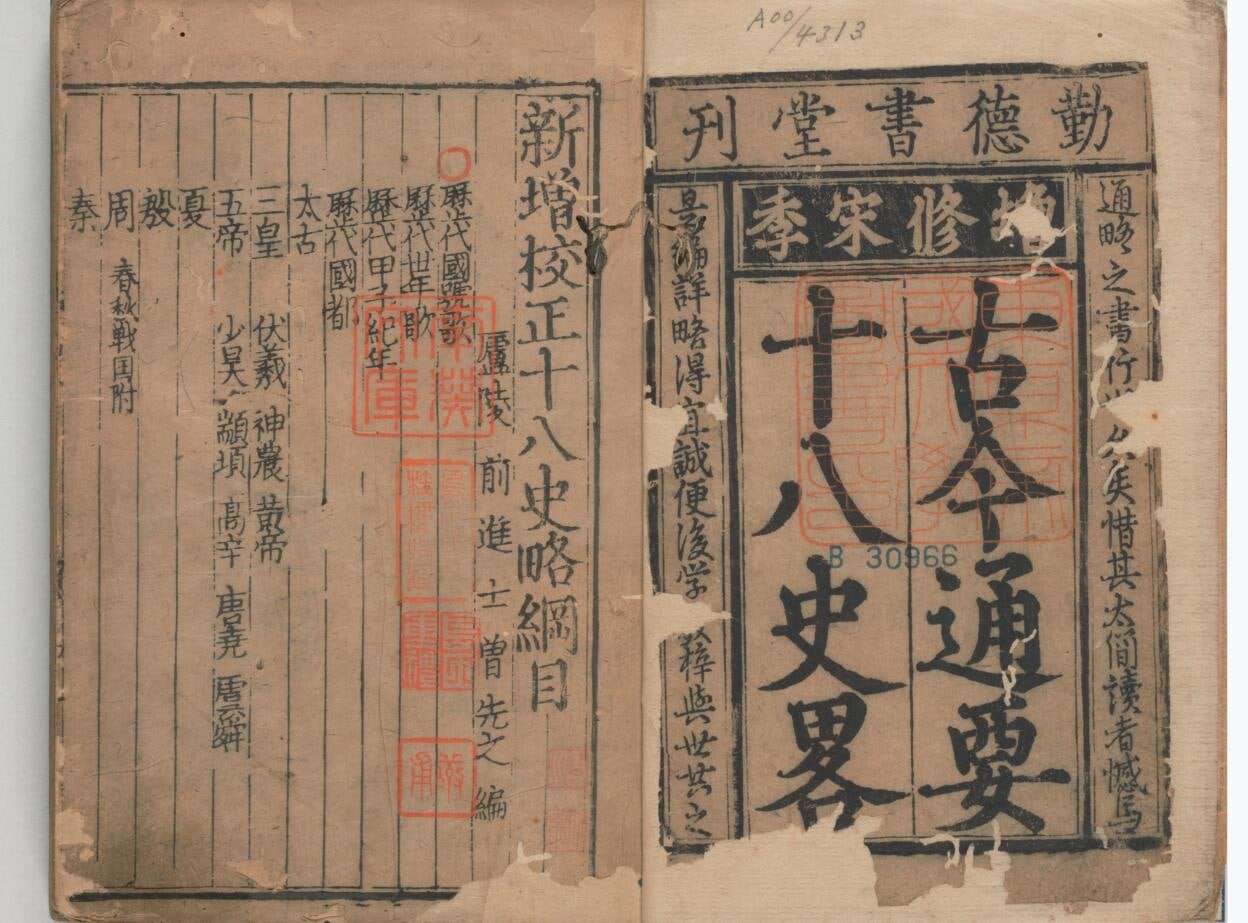 A00/4313
勤德書堂刊
增修宋季
通略之書行世久矣惜其太簡讀者憾焉
古今通要
十八史畧
是編詳略得宜誠便後学 梓與世共之
東京帝
國大學
圖書印
B 30966
新增校正十八史略綱目
廬陵 前進士曽先之編
歷代國號歌
歷代世年歌
歷代甲子紀年
歷代國都
太古
三皇 伏羲 神農 黄帝
五帝 少昊 顓頊 高辛 唐堯 虞舜
夏
殷
周 春秋戰国附
秦
南葵
文庫